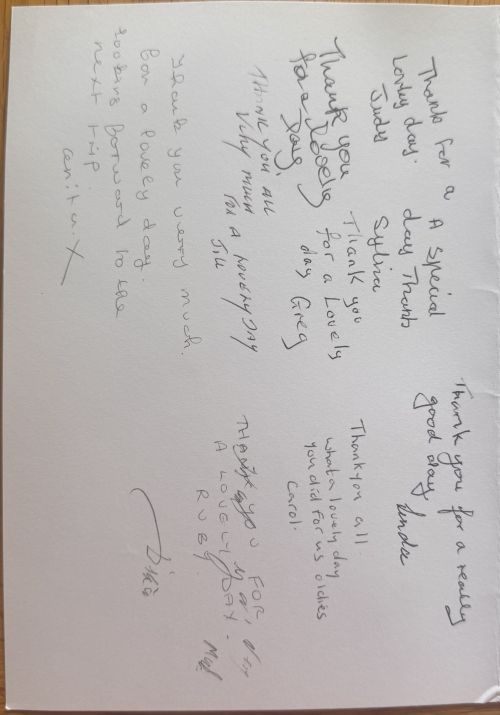 Thanks for a
Lovely day.
Judy
A special
day Thanks
Sylvia
Thank you
for a lovely
day,
Thank you
for a Lovely
day Greg
THANK YOU ALL
VERY MUCH
FOR A LOVELY DAY
JILL
Thank you very much.
For a lovely day.
looking forward to the
next trip
anita. X
Thank you for a really
good day
Linda
Thank you all.
what a lovely day
you did for us oldies
Carol.
THANK YOU FOR
A LOVELY DAY.
RUBY